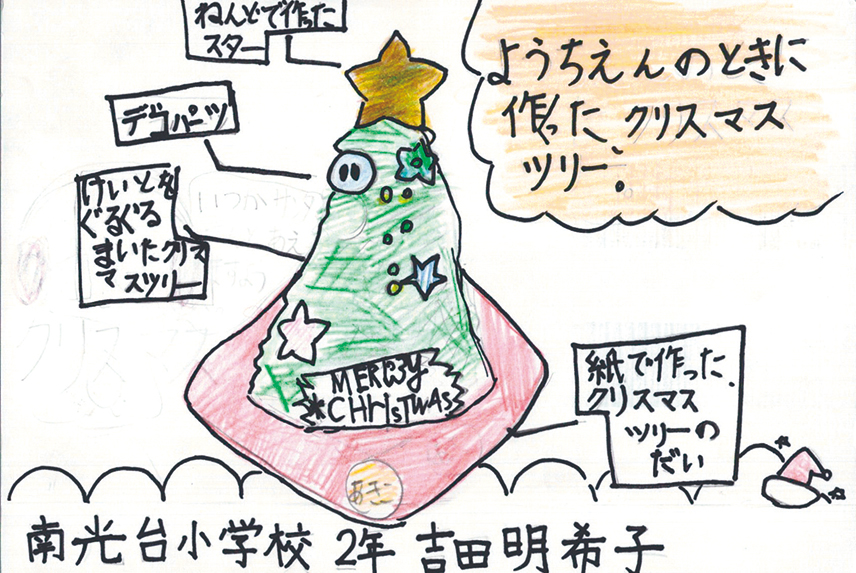 ねんどで作った
スター
ようちえんのときに
作った、クリスマス
ツリー。
デコパーツ
けいとを
ぐるぐる
まいたクリス
マスツリー
いつかサンタ
MERRY
CHrisTMAS
紙で作った、
クリスマス
ツリーの
だい
あきこ
南光台小学校 2年 吉田明希子